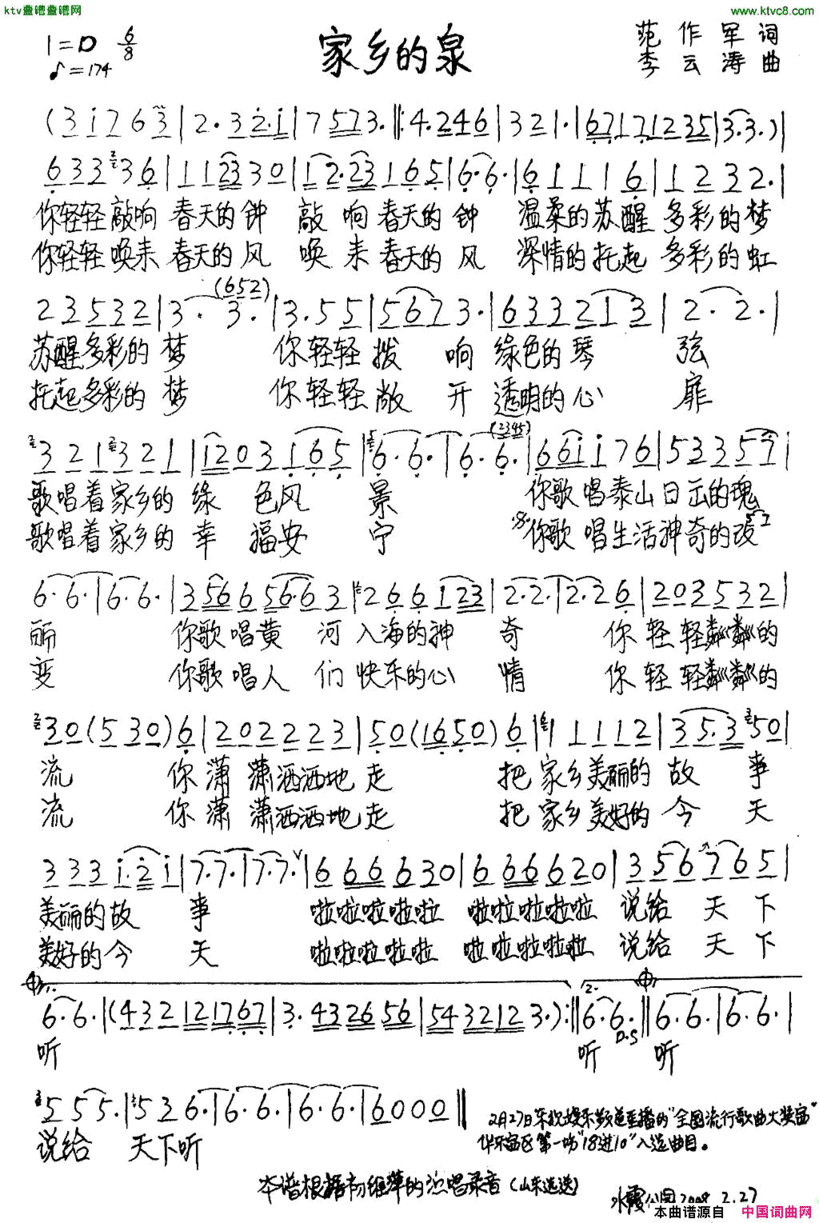 ktv查谱查谱网
www.ktvc8.com
1=D 6/8
♪=174
家乡的泉
范作军词
李云涛曲
(3 i 7 6 3 | 2· 3 2· i | 7 5 7 3· |: 4· 2 4 6 | 3 2 1· | 6 7 1 7 1 2 3 5 | 3· 3· ) |
6 3 3 3 6 | 1 1 2 3 3 0 | 1 2· 2 3 1 6 5 | 6· 6· | 6 1 1 1 6 | 1 2 3 2· |
你轻轻敲响 春天的钟 敲响春天的钟 温柔的苏醒 多彩的梦
你轻轻唤来 春天的风 唤来春天的风 深情的托起 多彩的虹
(6 5 2)
2 3 5 3 2 | 3· 3· | 3· 5 5 | 5 6 7 3· | 6 3 3 2 1 3 | 2· 2· |
苏醒多彩的梦 你轻轻拨响 绿色的琴弦
托起多彩的梦 你轻轻敞开 透明的心扉
(2345)
3 2 1 3 2 1 | i 2 0 3 i 6 5 | 6· 6· | 6· 6· | 6 6 i i 7 6 | 5 3 3 5 7 |
歌唱着家乡的绿色风景 你歌唱泰山日出的瑰
歌唱着家乡的幸福安宁 你歌唱生活神奇的改
6· 6· | 6· 6· | 3 5 6 6 5 6· 6 3 | 2 6 6 1 2 3 | 2· 2· | 2· 2 6 | 2 0 3 5 3 2 |
丽 你歌唱黄河入海的神奇 你轻轻粼粼的
变 你歌唱人们快乐的心情 你轻轻粼粼的
3 0 (5 3 0) 6 | 2 0 2 2 2 3 | 5 0 (1 6 5 0) 6 | 1 1 1 1 2 | 3 5· 3 5 0 |
流 你潇潇洒洒地走 把家乡美丽的故事
流 你潇潇洒洒地走 把家乡美好的今天
3 3 3 i· 2 i | 7· 7· | 7· 7· | 6 6 6 6 3 0 | 6 6 6 6 2 0 | 3 5 6 7 6 5 |
美丽的故事 啦啦啦啦啦 啦啦啦啦啦 说给天下
美好的今天 啦啦啦啦啦 啦啦啦啦啦 说给天下
1. 2.
6· 6· | (4 3 2 1 2 1 7 6 7 | 3· 4 3 2 6 5 6 | 5 4 3 2 1 2 3· ) :|| 6· 6· || 6· 6· | 6· 6· |
D.S
听 听 听
5 5 5· | 5 3 6· | 6· 6· | 6· 6· | 6 0 0 0 ||
说给 天下听
2月27日东视娱乐频道直播的"全国流行歌曲大奖赛"
华东赛区第一场"18进10"入选曲目。
本谱根据初维萍的演唱录音(山东选送)
水霞公园2008. 2.27
本曲谱源自 中国词曲网